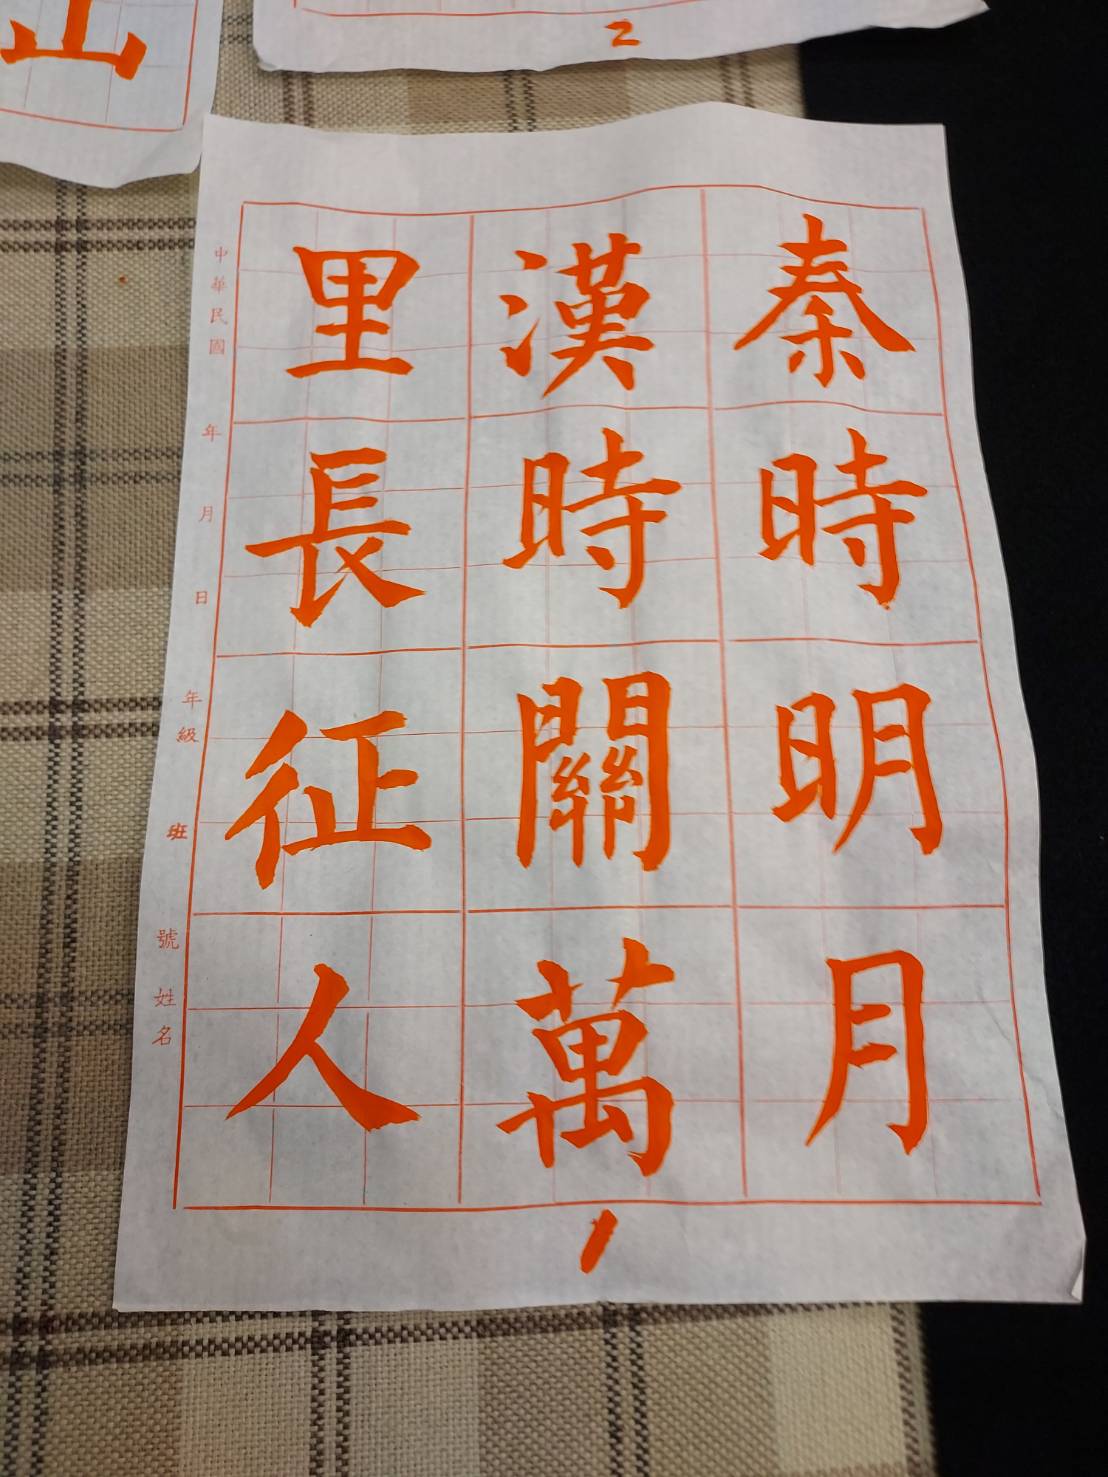 山
2
秦時明月
漢時關萬
里長征人
中華民國 年 月 日 年級 班 號 姓名
1